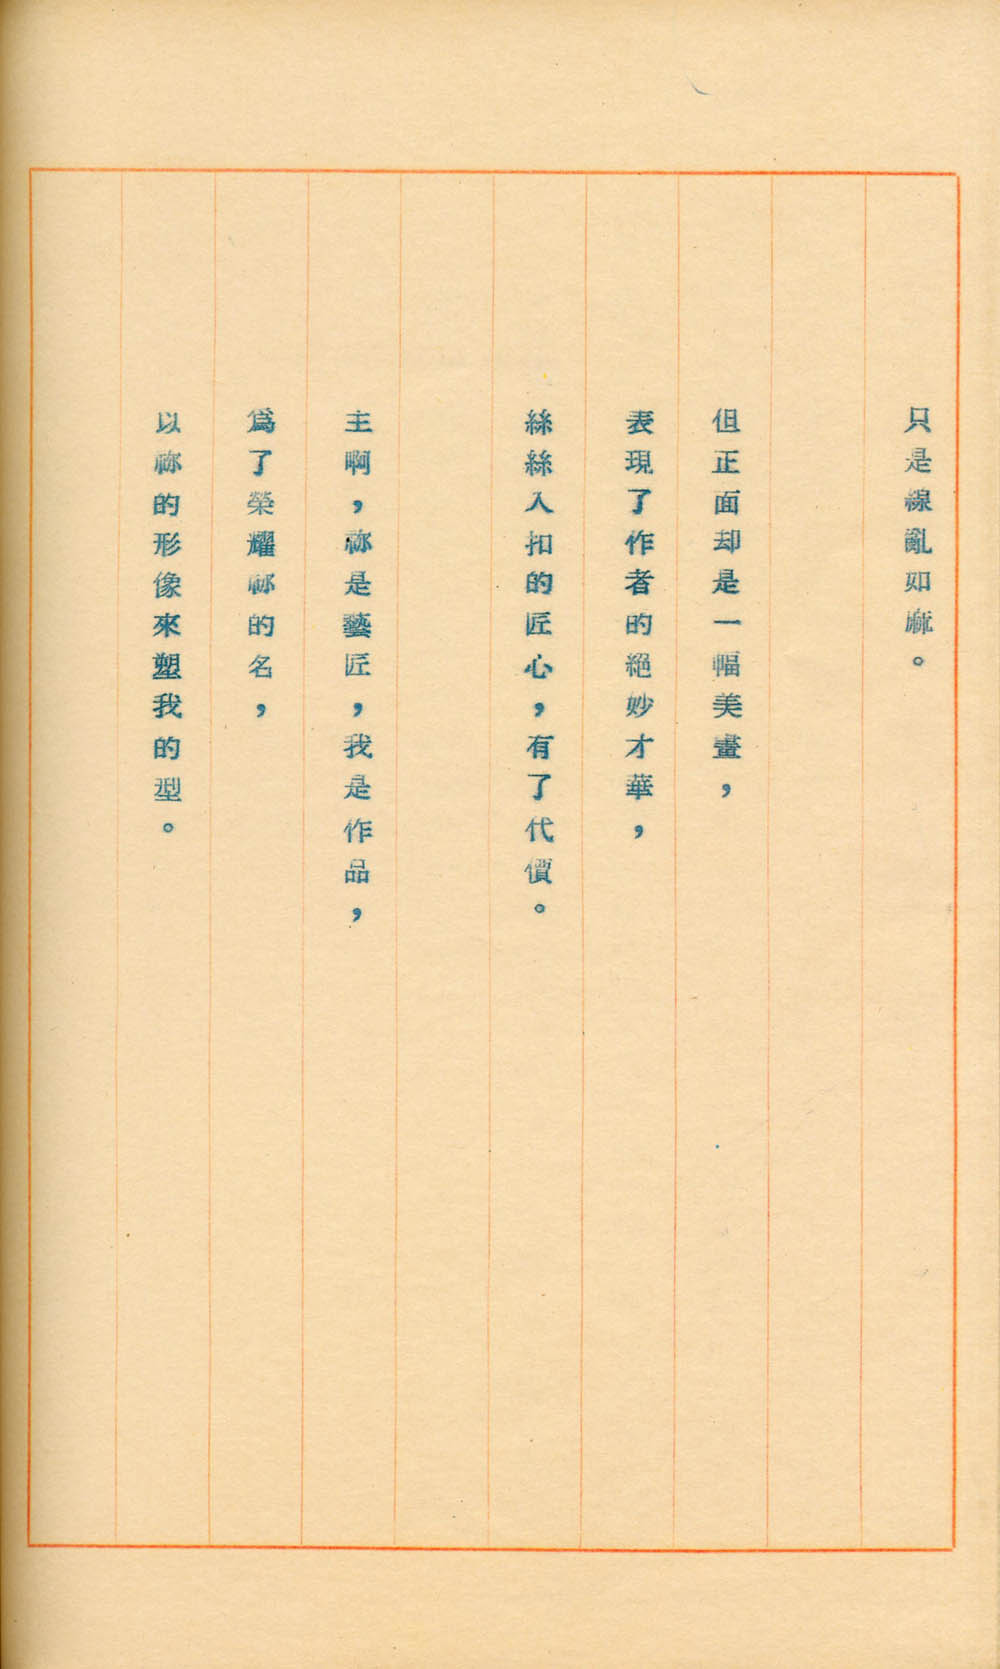 只是線亂如麻。
但正面却是一幅美畫，
表現了作者的絕妙才華，
絲絲入扣的匠心，有了代價。
主啊，祢是藝匠，我是作品，
爲了榮耀祢的名，
以祢的形像來塑我的型。